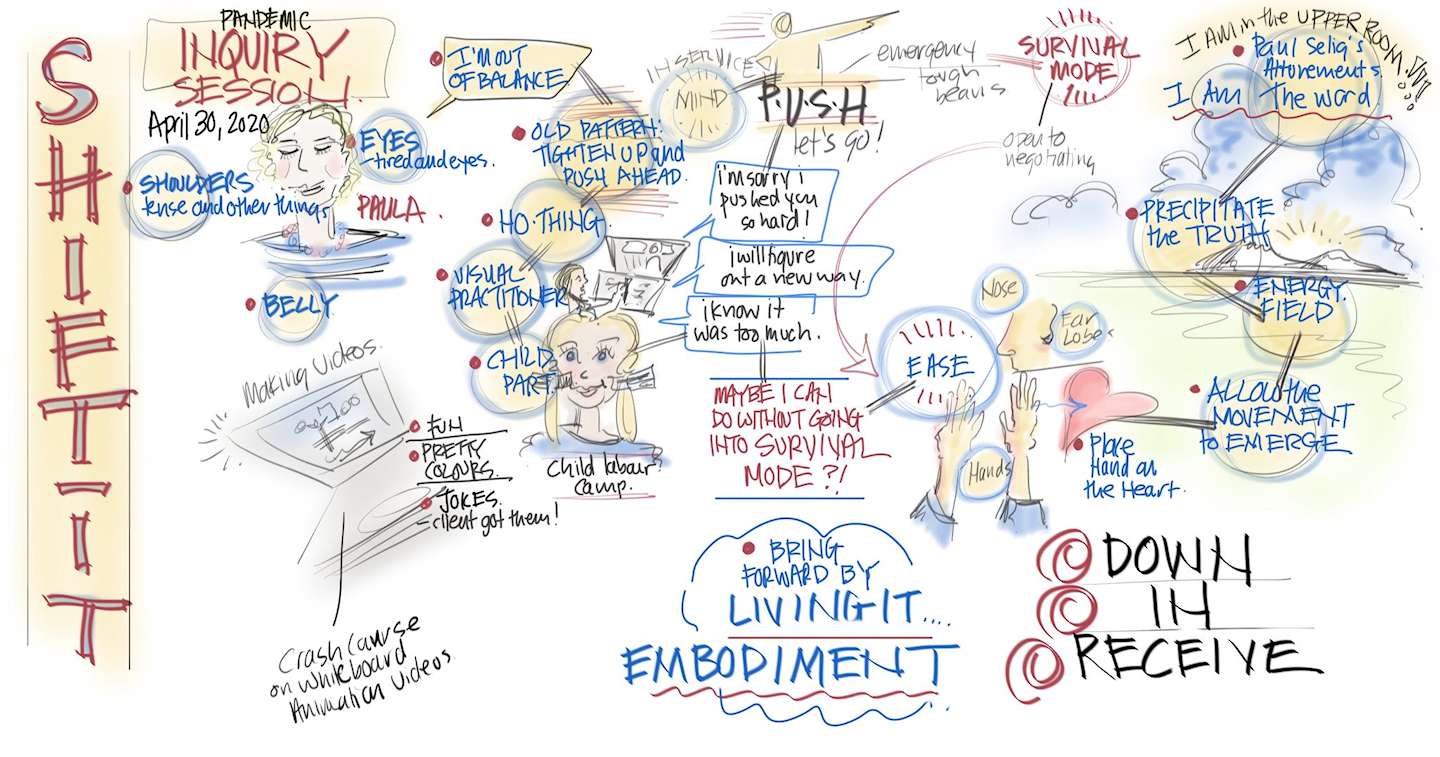 SHIFT-IT
PANDEMIC
INQUIRY
SESSION.
April 30, 2020
EYES
- tired and eyes.
SHOULDERS
tense and other things
PAULA.
BELLY
I'M OUT
OF BALANCE
OLD PATTERN:
TIGHTEN UP and
PUSH AHEAD.
HO-THING
VISUAL
PRACTITIONER
CHILD
PART.
child labour
camp.
Making Videos.
FUN
PRETTY
COLOURS.
JOKES.
- client got them!
Crash Course
on Whiteboard
Animation Videos.
IN SERVICE
MIND
P.U.S.H
let's go!
emergency
tough
beans
SURVIVAL
MODE
open to
negotiating
i'm sorry i
pushed you
so hard!
i will figure
out a new way.
i know it
was too much.
MAYBE I CAN
DO WITHOUT GOING
INTO SURVIVAL
MODE?!
EASE
Nose
Ear
Lobes
Hands
Place
Hand on
the Heart.
ALLOW the
MOVEMENT
to EMERGE
ENERGY
FIELD
PRECIPITATE
the TRUTH
I AM in the UPPER ROOM!!!
Paul Selig's
Attunements.
I AM The word.
BRING
FORWARD BY
LIVING IT....
EMBODIMENT
DOWN
IN
RECEIVE